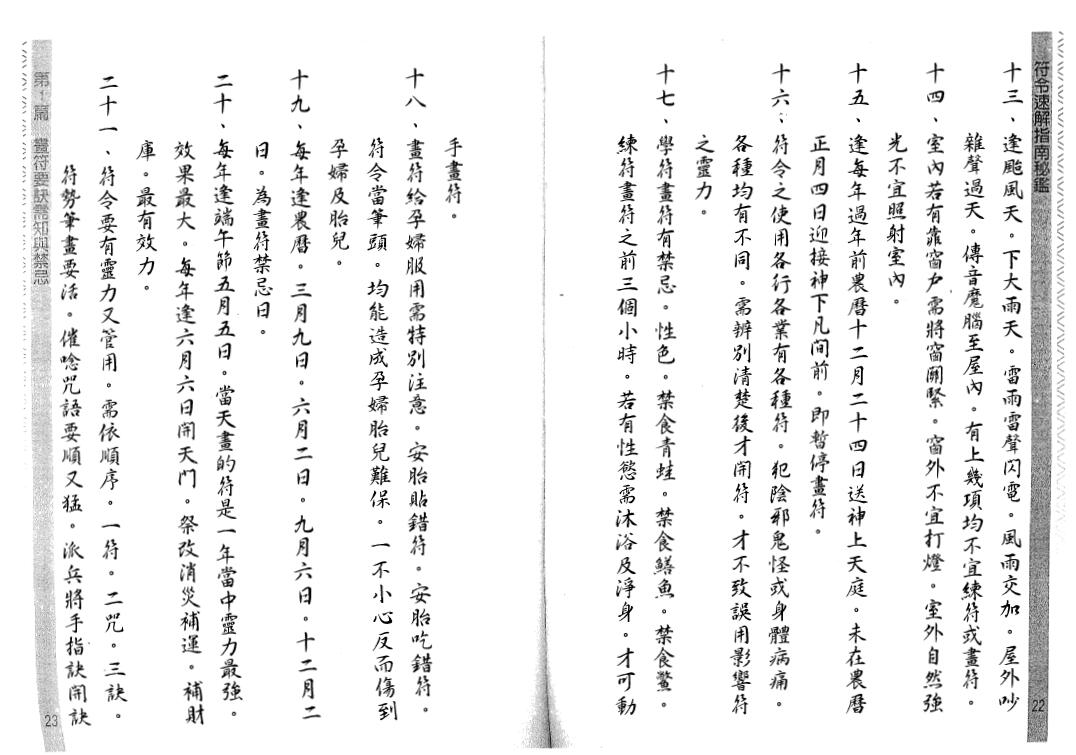 符令速解指南秘鑑
十三、逢颱風天。下大雨天。雷雨雷聲閃電。風雨交加。屋外吵
雜聲過天。傳音魔腦至屋內。有上幾項均不宜練符或畫符。
十四、室內若有靠窗戶需將窗關緊。窗外不宜打燈。室外自然強
光不宜照射室內。
十五、逢每年過年前農曆十二月二十四日送神上天庭。未在農曆
正月四日迎接神下凡間前。即暫停畫符。
十六、符令之使用各行各業有各種符。犯陰邪鬼怪或身體病痛。
各種均有不同。需辨別清楚後才開符。才不致誤用影響符
之靈力。
十七、學符畫符有禁忌。性色。禁食青蛙。禁食鱔魚。禁食鱉。
練符畫符之前三個小時。若有性慾需沐浴及淨身。才可動
22
手畫符。
十八、畫符給孕婦服用需特別注意。安胎貼錯符。安胎吃錯符。
符令當筆頭。均能造成孕婦胎兒難保。一不小心反而傷到
孕婦及胎兒。
十九、每年逢農曆。三月九日。六月二日。九月六日。十二月二
日。為畫符禁忌日。
二十、每年逢端午節五月五日。當天畫的符是一年當中靈力最強。
效果最大。每年逢六月六日開天門。祭改消災補運。補財
庫。最有效力。
二十一、符令要有靈力又管用。需依順序。一符。二咒。三訣。
符勢筆畫要活。催唸咒語要順又猛。派兵將手指訣開訣
第1篇 畫符要訣需知與禁忌
23